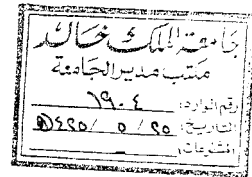 جامعة الملك خالد
مكتب مدير الجامعة
رقم الوارد: ١٩٠٤
التاريخ: ٢٥ / ٥ / ١٤٢٥هـ
المشفوعات: ــ